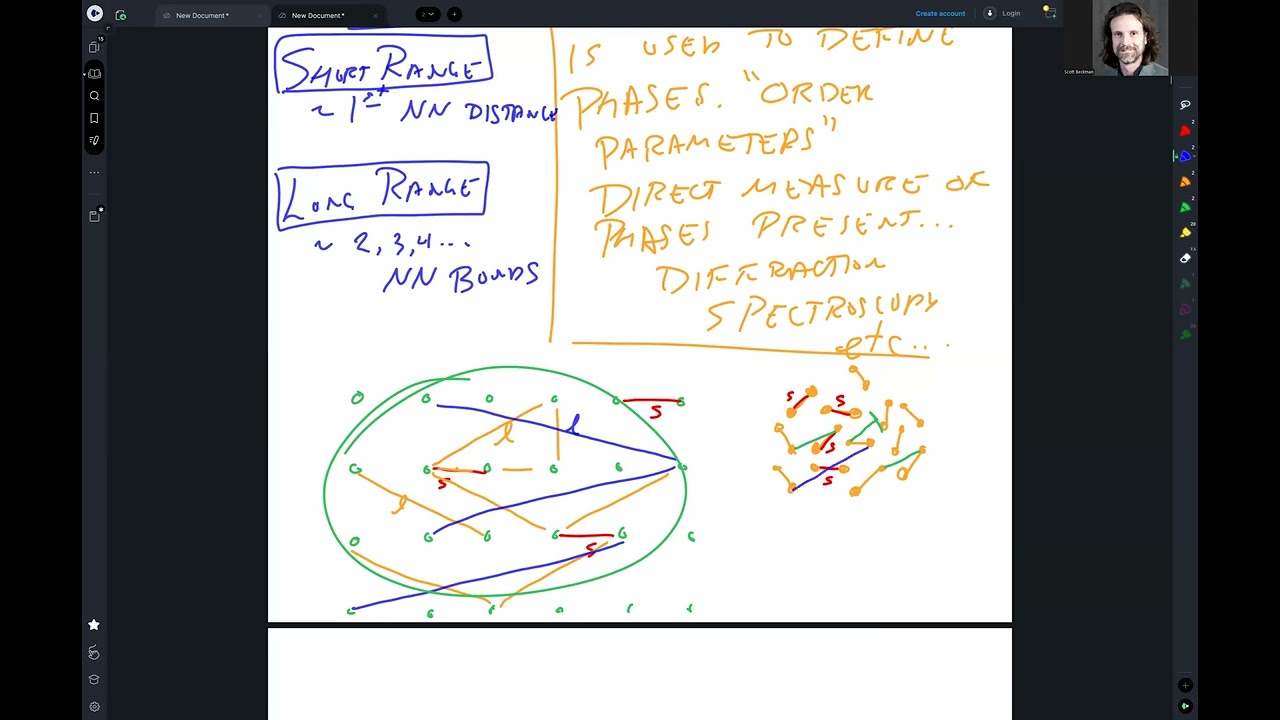 New Document *
New Document *
2
Create account
Login
Scott Beckman
15
SHORT RANGE
~ 1st NN DISTANCE
LONG RANGE
~ 2, 3, 4 ...
NN BONDS
IS USED TO DEFINE
PHASES. "ORDER
PARAMETERS"
DIRECT MEASURE OF
PHASES PRESENT...
DIFFRACTION
SPECTROSCOPY
etc...
s
l
l
s
l
s
s
s
s
s
2
2
2
2
20
7.5